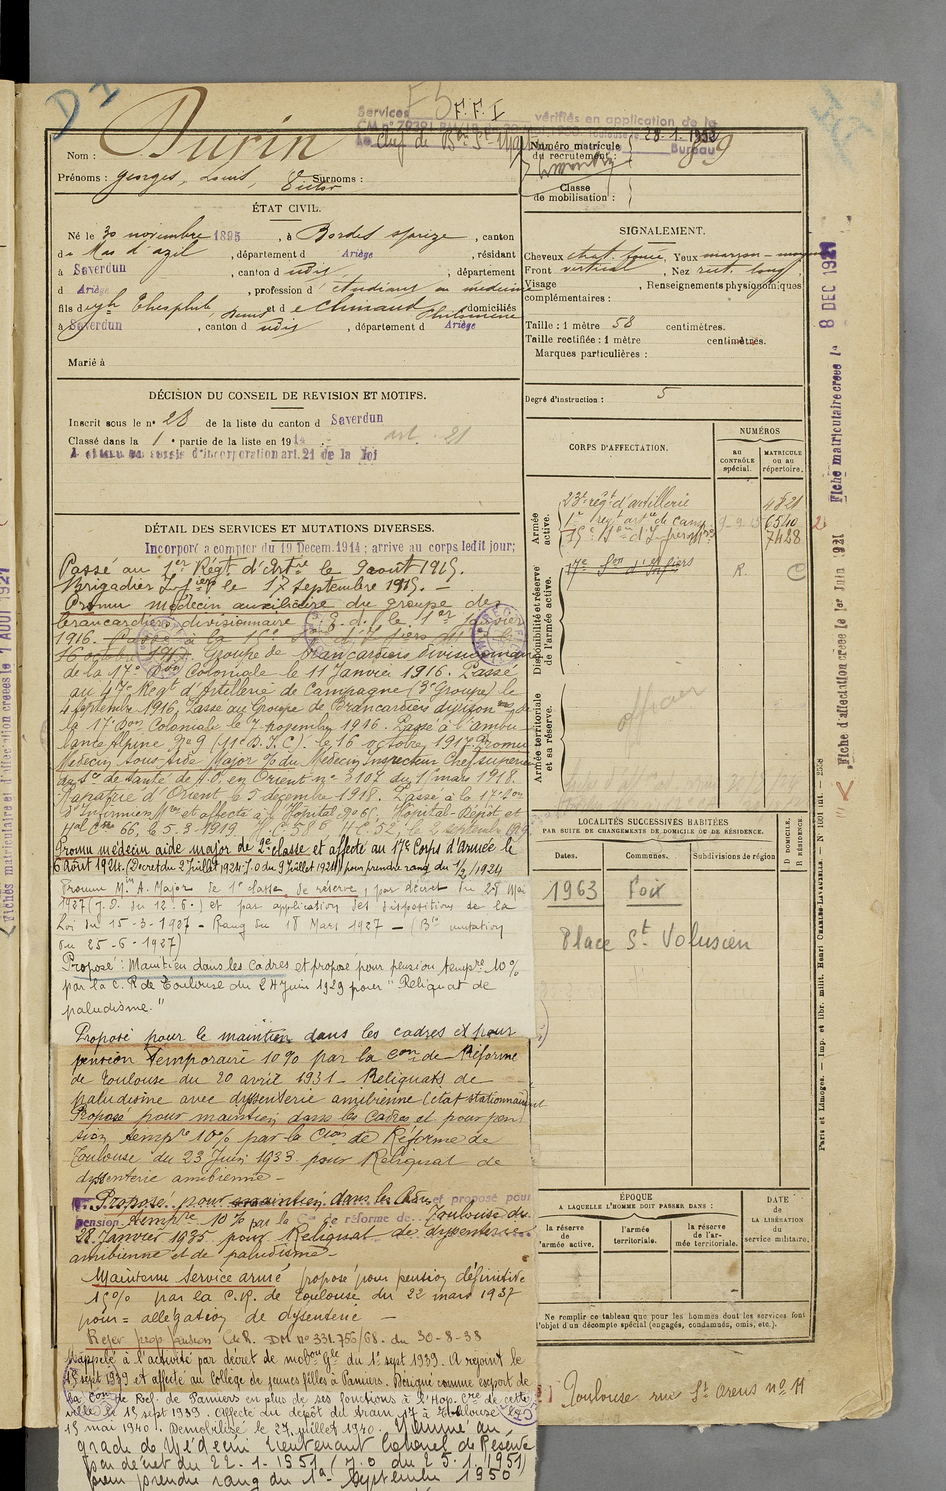 D 1
F5 F.F.I
Services
vérifiés en application de la
28.1.1952
Bureau
Nom : Durin
Prénoms : Georges, Louis, Victor Surnoms :
Numéro matricule
du recrutement :
Classe
de mobilisation :
ÉTAT CIVIL.
Né le 30 novembre 1895, à Bordes s/arize, canton
du Mas d'azil, département d Ariège, résidant
à Saverdun, canton d udis, département
d Ariège, profession d'étudiant en médecine
fils d et d domiciliés
à Saverdun, canton d udis, département d Ariège
Marié à
SIGNALEMENT.
Cheveux chat. foncé, Yeux marron
Front vertical, Nez rect. long
Visage , Renseignements physionomiques
complémentaires :
Taille : 1 mètre 58 centimètres.
Taille rectifiée : 1 mètre centimètres.
Marques particulières :
Degré d'instruction : 5
DÉCISION DU CONSEIL DE REVISION ET MOTIFS.
Inscrit sous le n° 28 de la liste du canton d Saverdun
Classé dans la 1e partie de la liste en 1914 art. 21
A obtenu un sursis d'incorporation art. 21 de la loi
CORPS D'AFFECTATION.
NUMÉROS
au
CONTRÔLE
spécial.
MATRICULE
ou au
répertoire.
Armée
active.
23e régt d'artillerie 4821
1er régt artie de camp. 9-9-15 6540
15e Son d'Infirmiers 7428
Disponibilité et réserve
de l'armée active.
17e Son d'Infiers R. C
Armée territoriale
et sa réserve.
officier
DÉTAIL DES SERVICES ET MUTATIONS DIVERSES.
Incorporé à compter du 19 Decem. 1914; arrivé au corps ledit jour;
Passé au 1er Régt d'Artie le 9 août 1915.
Brigadier le 17 septembre 1915. -
Promu médecin auxiliaire du groupe des
brancardiers divisionnaire le 1er Janvier
1916. Passé à la
16 octobre 1917. Groupe de brancardiers divisionnaire
de la 17e Don Coloniale le 11 Janvier 1916. Passé
au 47e Régt d'Artillerie de Campagne (3e Groupe) le
4 septembre 1916. Passé au Groupe de Brancardiers divisionres de
la 17e Don Coloniale le 7 novembre 1916. Passé à l'ambu-
lance Alpine N° 9 (11e D.I.C). le 16 octobre 1917. Promu
Médecin Sous-Aide Major % du Médecin Inspecteur Chef supérieur
du Sce de Santé de A.O. en Orient n° 3107 du 1 mars 1918.
Rapatrié d'Orient le 5 décembre 1918. Passé à la 17e Son
d'Infirmiers Mres et affecté à l'Hôpital N° 66. Hôpital-Dépôt et
66, le 5.3.1919.
Promu médecin aide major de 2e classe et affecté au 17e Corps d'Armée le
6 Août 1924. (Décret du 2 Juillet 1924. J.O du 9 Juillet 1924) pour prendre rang du 1/2/1924
Promu Min A. Major de 1e classe de réserve, par décret du 28 Mai
1927 (J.O. du 12.6.) et par application des dispositions de la
Loi du 15-3-1927 - Rang du 18 Mars 1927 - (Bin mutation
du 25-6-1927)
Proposé : Maintien dans les cadres et proposé pour pension tempre 10 %
par la C. R de Toulouse du 24 Juin 1929 pour "Reliquat de
paludisme."
Proposé pour le maintien dans les cadres et pour
pension temporaire 10 % par la Con de Réforme
de Toulouse du 20 avril 1931 - Reliquats de
paludisme avec dyssenterie amibienne (état stationnaire)
Proposé pour maintien dans les Cadres et pour pen
sion tempre 10 % par la Cion de Réforme de
Toulouse du 23 Juin 1933 pour Reliquat de
dyssenterie amibienne -
Proposé pour maintien dans les Cadres et proposé pour
pension tempre 10 % par la Con de réforme de Toulouse du
28 Janvier 1935 pour Reliquat de dyssenterie
amibienne et de paludisme -
Maintenu Service armé proposé pour pension définitive
15 % par la C.R. de Toulouse du 22 mars 1937
pour = allégation de dysenterie -
Rejet prop. pension C.R. DM N° 331.755/68. du 30-8-38
Rappelé à l'activité par décret de mobon Gle du 1er sept 1939. A rejoint le
sept 1939 et affecté au Collège de jeunes filles à Pamiers. Désigné comme expert de
la Con de Réf. de Pamiers en plus de ses fonctions à l'Hop. Cre de cette
ville le 15 sept 1939. Affecté du dépôt du train 17 à Toulouse le
15 mai 1940. Démobilisé le 27 juillet 1940. Nommé au
grade de Médecin Lieutenant Colonel de Réserve
par décret du 22.1.1951 (J.O du 25.1.1951)
pour prendre rang du 1er Septembre 1950
LOCALITÉS SUCCESSIVES HABITÉES
PAR SUITE DE CHANGEMENTS DE DOMICILE OU DE RÉSIDENCE.
Dates.
Communes.
Subdivisions de région
D DOMICILE,
R RÉSIDENCE
1963 Foix
Place St Volusien
ÉPOQUE
A LAQUELLE L'HOMME DOIT PASSER DANS :
la réserve
de
l'armée active.
l'armée
territoriale.
la réserve
de l'ar-
mée territoriale.
DATE
de
LA LIBÉRATION
du
service militaire.
Ne remplir ce tableau que pour les hommes dont les services font
l'objet d'un décompte spécial (engagés, condamnés, omis, etc.).
Toulouse rue St Orens n° 11
Fiche matriculaire créée le 8 DEC 1921
Fiche d'affectation créée le 1er Juin 1921
Paris et Limoges. — Imp. et libr. milit. Henri CHARLES-LAVAUZELLE.
Fiches matriculaire et d'affectation créées le 7 AOUT 1921